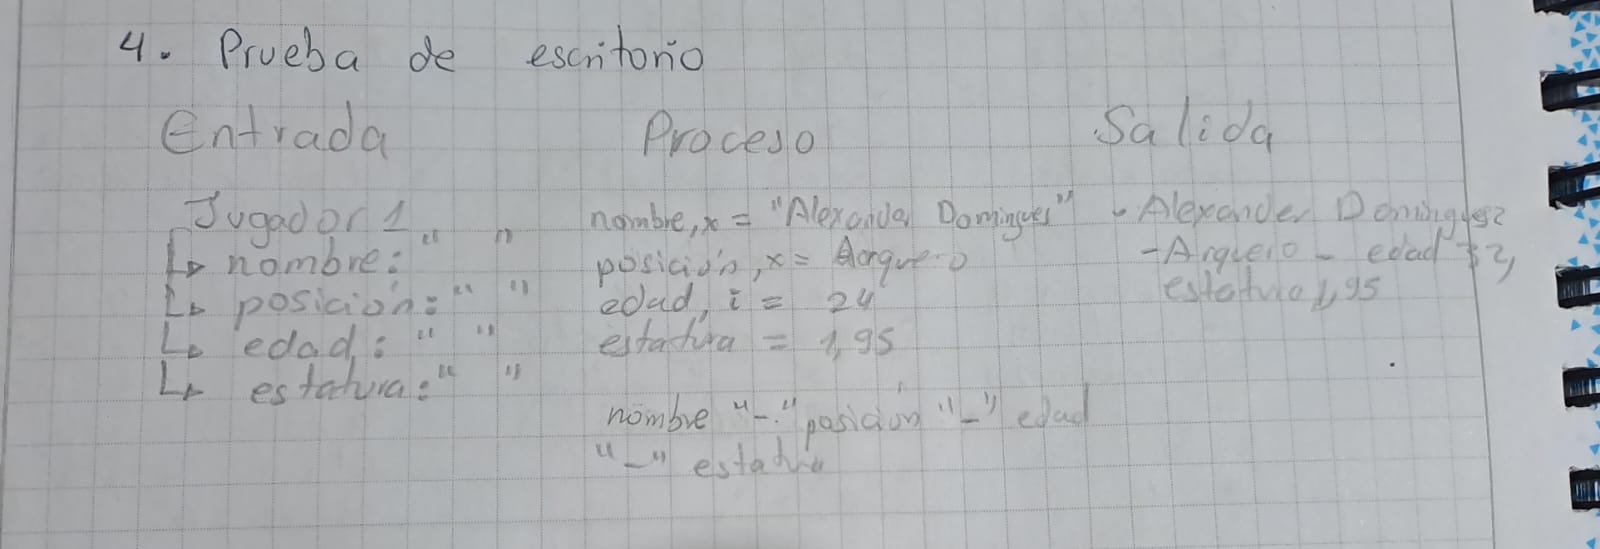 4. Prueba de escritorio
Entrada Proceso Salida
Jugador 1
↳ nombre: " "
↳ posición: " "
↳ edad: " "
↳ estatura: " "
nombre, x = "Alexander Domingues"
posición, x = Arquero
edad, i = 24
estatura = 1,95
nombre "-" posición "-" edad
"-" estatura
- Alexander Dominguez
- Arquero - edad
estatura 1,95